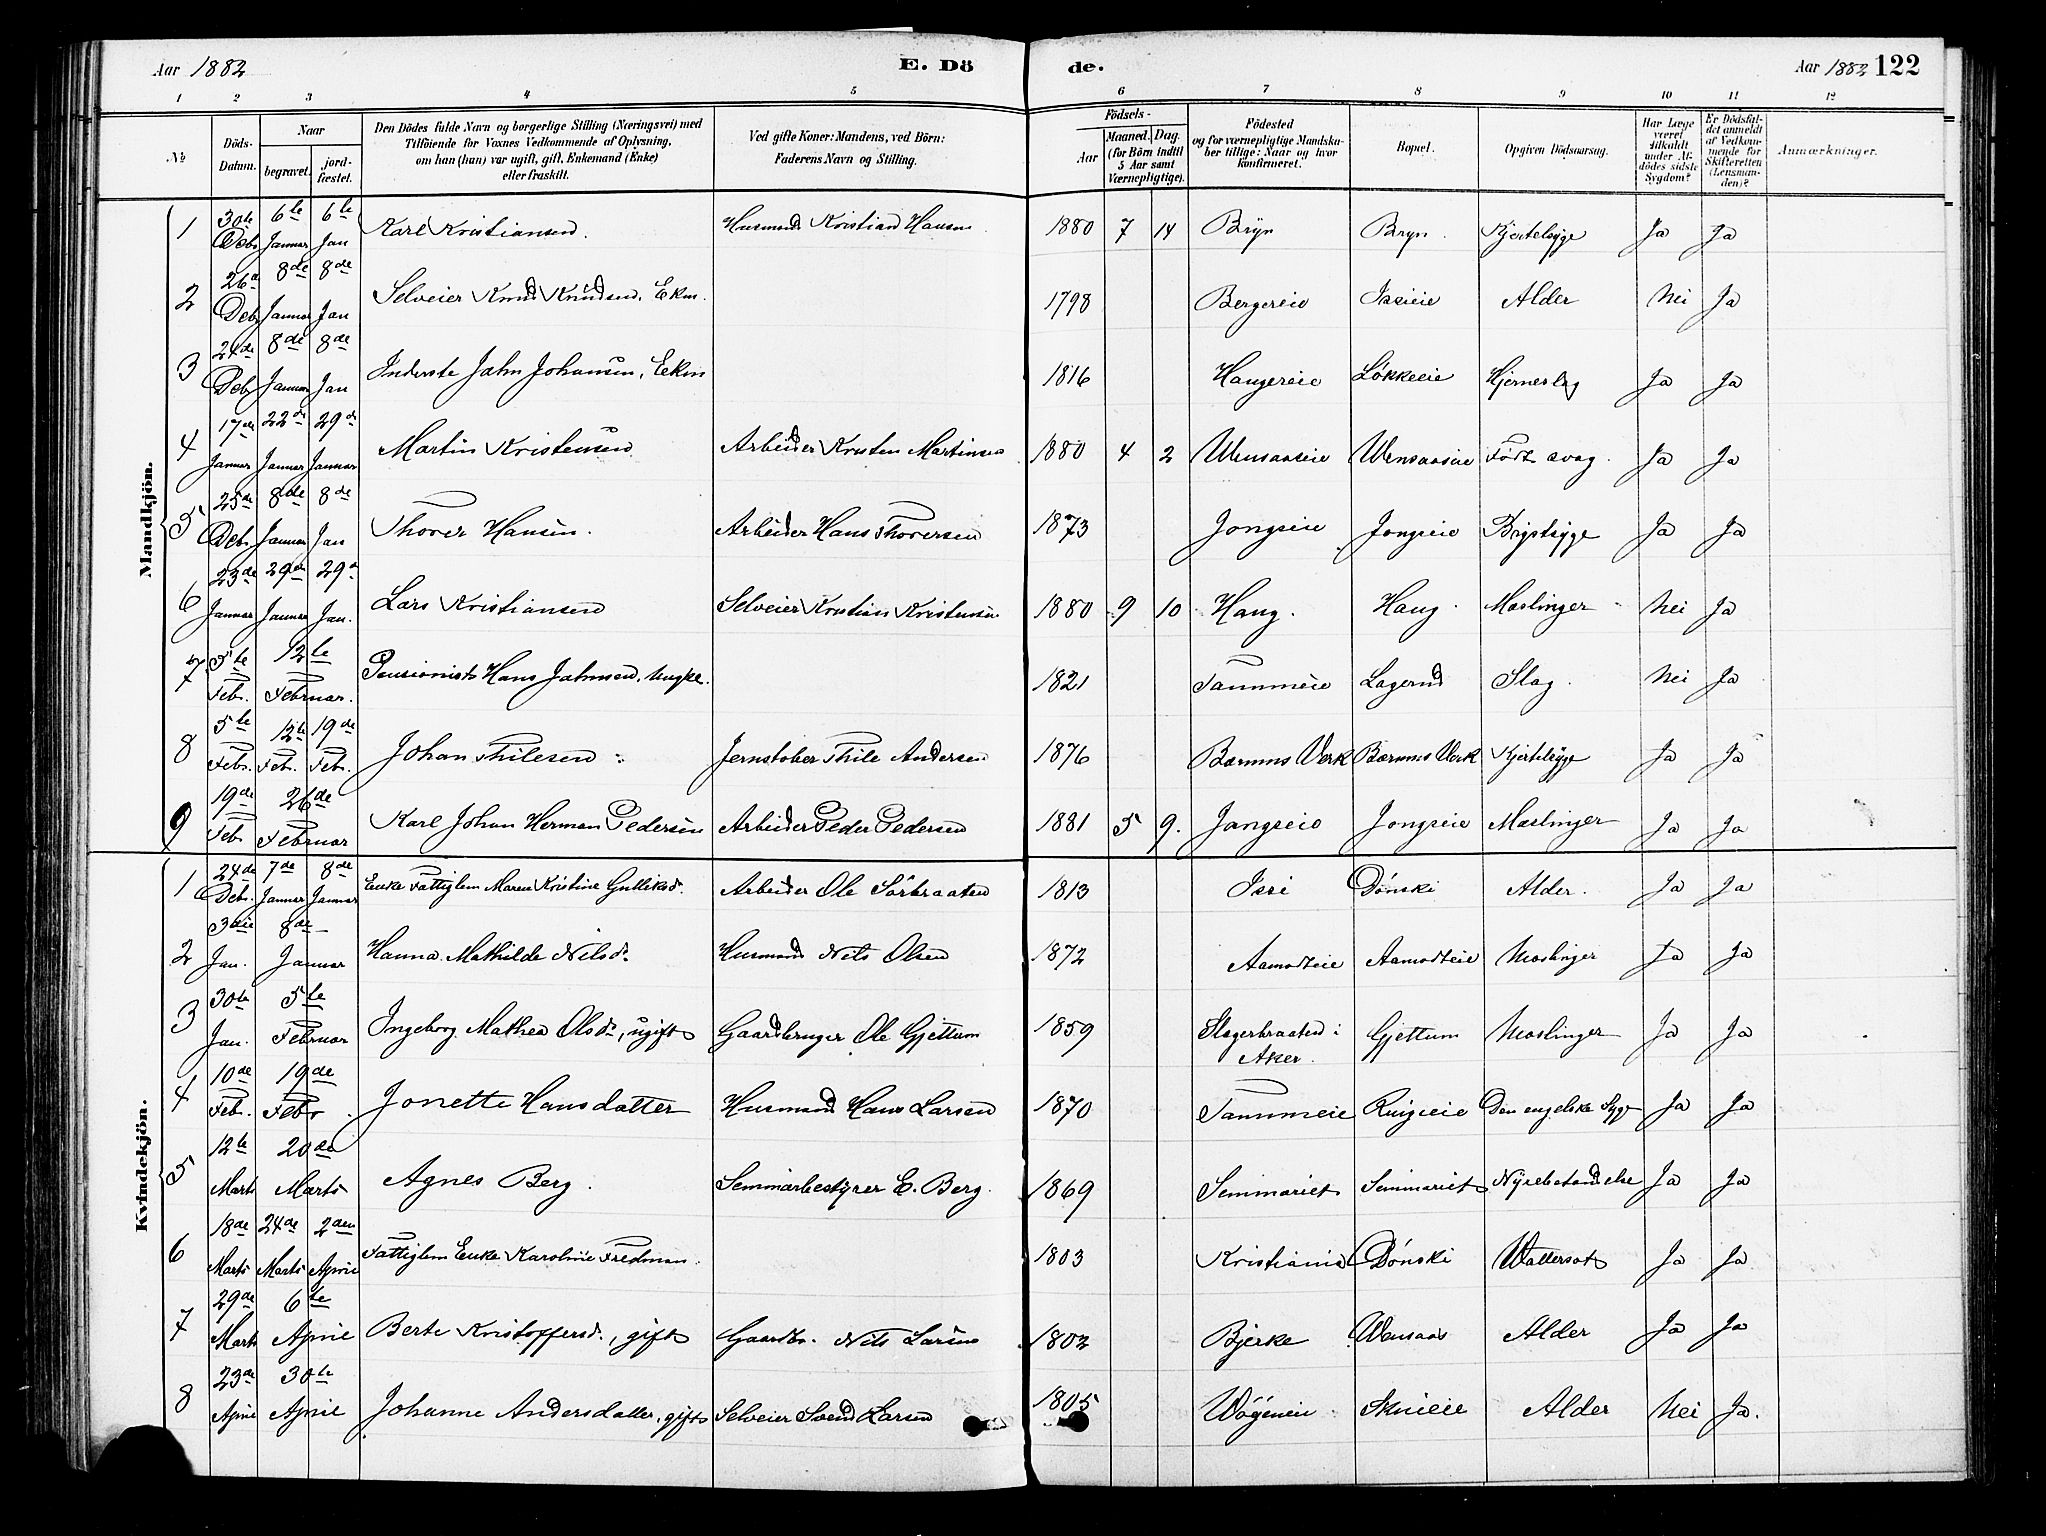 Aar 1882 E. Dö de. Aar 1882 122
1 2 3 4 5 6 7 8 9 10 11 12
No
Döds-Datum.
Naar
begravet. jordfæstet.
Den Dödes fulde Navn og borgerlige Stilling (Næringsvei) med
Tilföiende for Voxnes Vedkommende af Oplysning,
om han (hun) var ugift, gift, Enkemand (Enke)
eller fraskilt.
Ved gifte Koner: Mandens, ved Börn:
Faderens Navn og Stilling.
Födsels-
Aar Maaned. Dag.
(for Börn indtil
5 Aar samt
Værnepligtige).
Födested
og for værnepligtige Mandskaber tillige: Naar og hvor
konfirmeret.
Bopæl.
Opgiven Dödsaarsag.
Har Læge
været
tilkaldt
under Afdödes sidste
Sygdom?
Er Dödsfaldet anmeldt
af Vedkommende for
Skifteretten
(Lensmanden)?
Anmærkninger.
Mandkjön.
1 30te Debr 6te Januar 6te Jan Karl Kristiansen. Husmand Kristian Hansen 1880 7 14 Bryn Bryn Kjertelsyge Ja Ja
2 26de Debr 8de Januar 8de Jan Selveier Knud Knudsen, Ekm. 1798 Bergereie Isieie Alder Nei Ja
3 24de Deb 8de Januar 8de Jan Inderste Jahn Johansen, Eekm 1816 Haugereie Lökkeeie Hjerneslag Ja Ja
4 17de Januar 22de Januar 29de Januar Martin Kristensen Arbeider Kristen Martinsen 1880 4 2 Wensaaseie Wensaaseie Födt svag. Ja Ja
5 25de Debr 8de Januar 8de Jan Thorer Hansen. Arbeider Hans Thorersen 1873 Jongseie Jongseie Brystsyge Ja Ja
6 23de Januar 29de Januar 29de Jan. Lars Kristiansen Selveier Kristian Kristensen 1880 9 10 Haug. Haug. Mæslinger Nei Ja
7 5te Febr. 12te Februar. Pensionist Hans Jahnsen, Ungk. 1821 Tanumeie Lagerud Slag. Nei Ja
8 5te Febr. 12te Feb. 19de Feb. Johan Thilesen Jernstøber Thile Andersen 1876 Bærums Verk Bærums Verk Kjertelsyge Ja Ja
9 19de Feb. 26de Februar Karl Johan Herman Pedersen Arbeider Peder Pedersen 1881 5 9. Jongseie Jongseie Mæslinger Ja Ja
Kvindekjön.
1 24de Debr. 7de Januar 8de Januar Enke Fattiglem Maren Kristine Gulliksd. Arbeider Ole Sörbraaten 1813 Isei Dönski Alder. Ja Ja
2 3die Jan. 8de Januar Hanna Mathilde Nilsdr. Husmand Nils Olsen 1872 Aamodteie Aamodteie Mæslinger Ja Ja
3 30te Jan. 5te Februar Ingeborg Mathea Olsdr., ugift Gaardbruger Ole Gjettum 1859 Slagerbraaten i Aker. Gjettum Mæslinger Ja Ja
4 10de Feb. 19de Febr. Jonette Hansdatter Husmand Hans Larsen 1870 Tanumeie Ringieie Den engelske Syge Ja Ja
5 12te Marts 20de Marts Agnes Berg. Seminarbestyrer E. Berg. 1869 Seminariet Seminariet Nyrebetændelse Ja Ja
6 18de Marts 24de Marts 2den April Fattiglem Enke Karoline Fredman. 1803 Kristiania Dönski Wattersot Ja Ja
7 29de Marts 6te April Berte Kristoffersd., gift Gaardbr. Nils Larsen 1802 Bjerke Wensaas Alder Ja Ja
8 23de April 30te April Johanne Andersdatter, gift Selveier Svend Larsen 1805 Wögeneie Skuieie Alder Nei Ja.